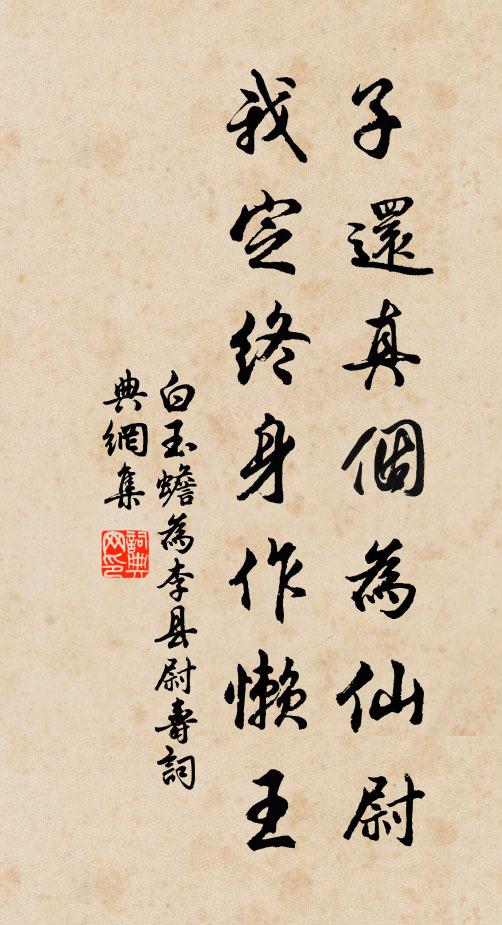 子還真個為仙尉
我定終身作懶王
白玉蟾為李县尉壽詞
典網集
詞典
网印